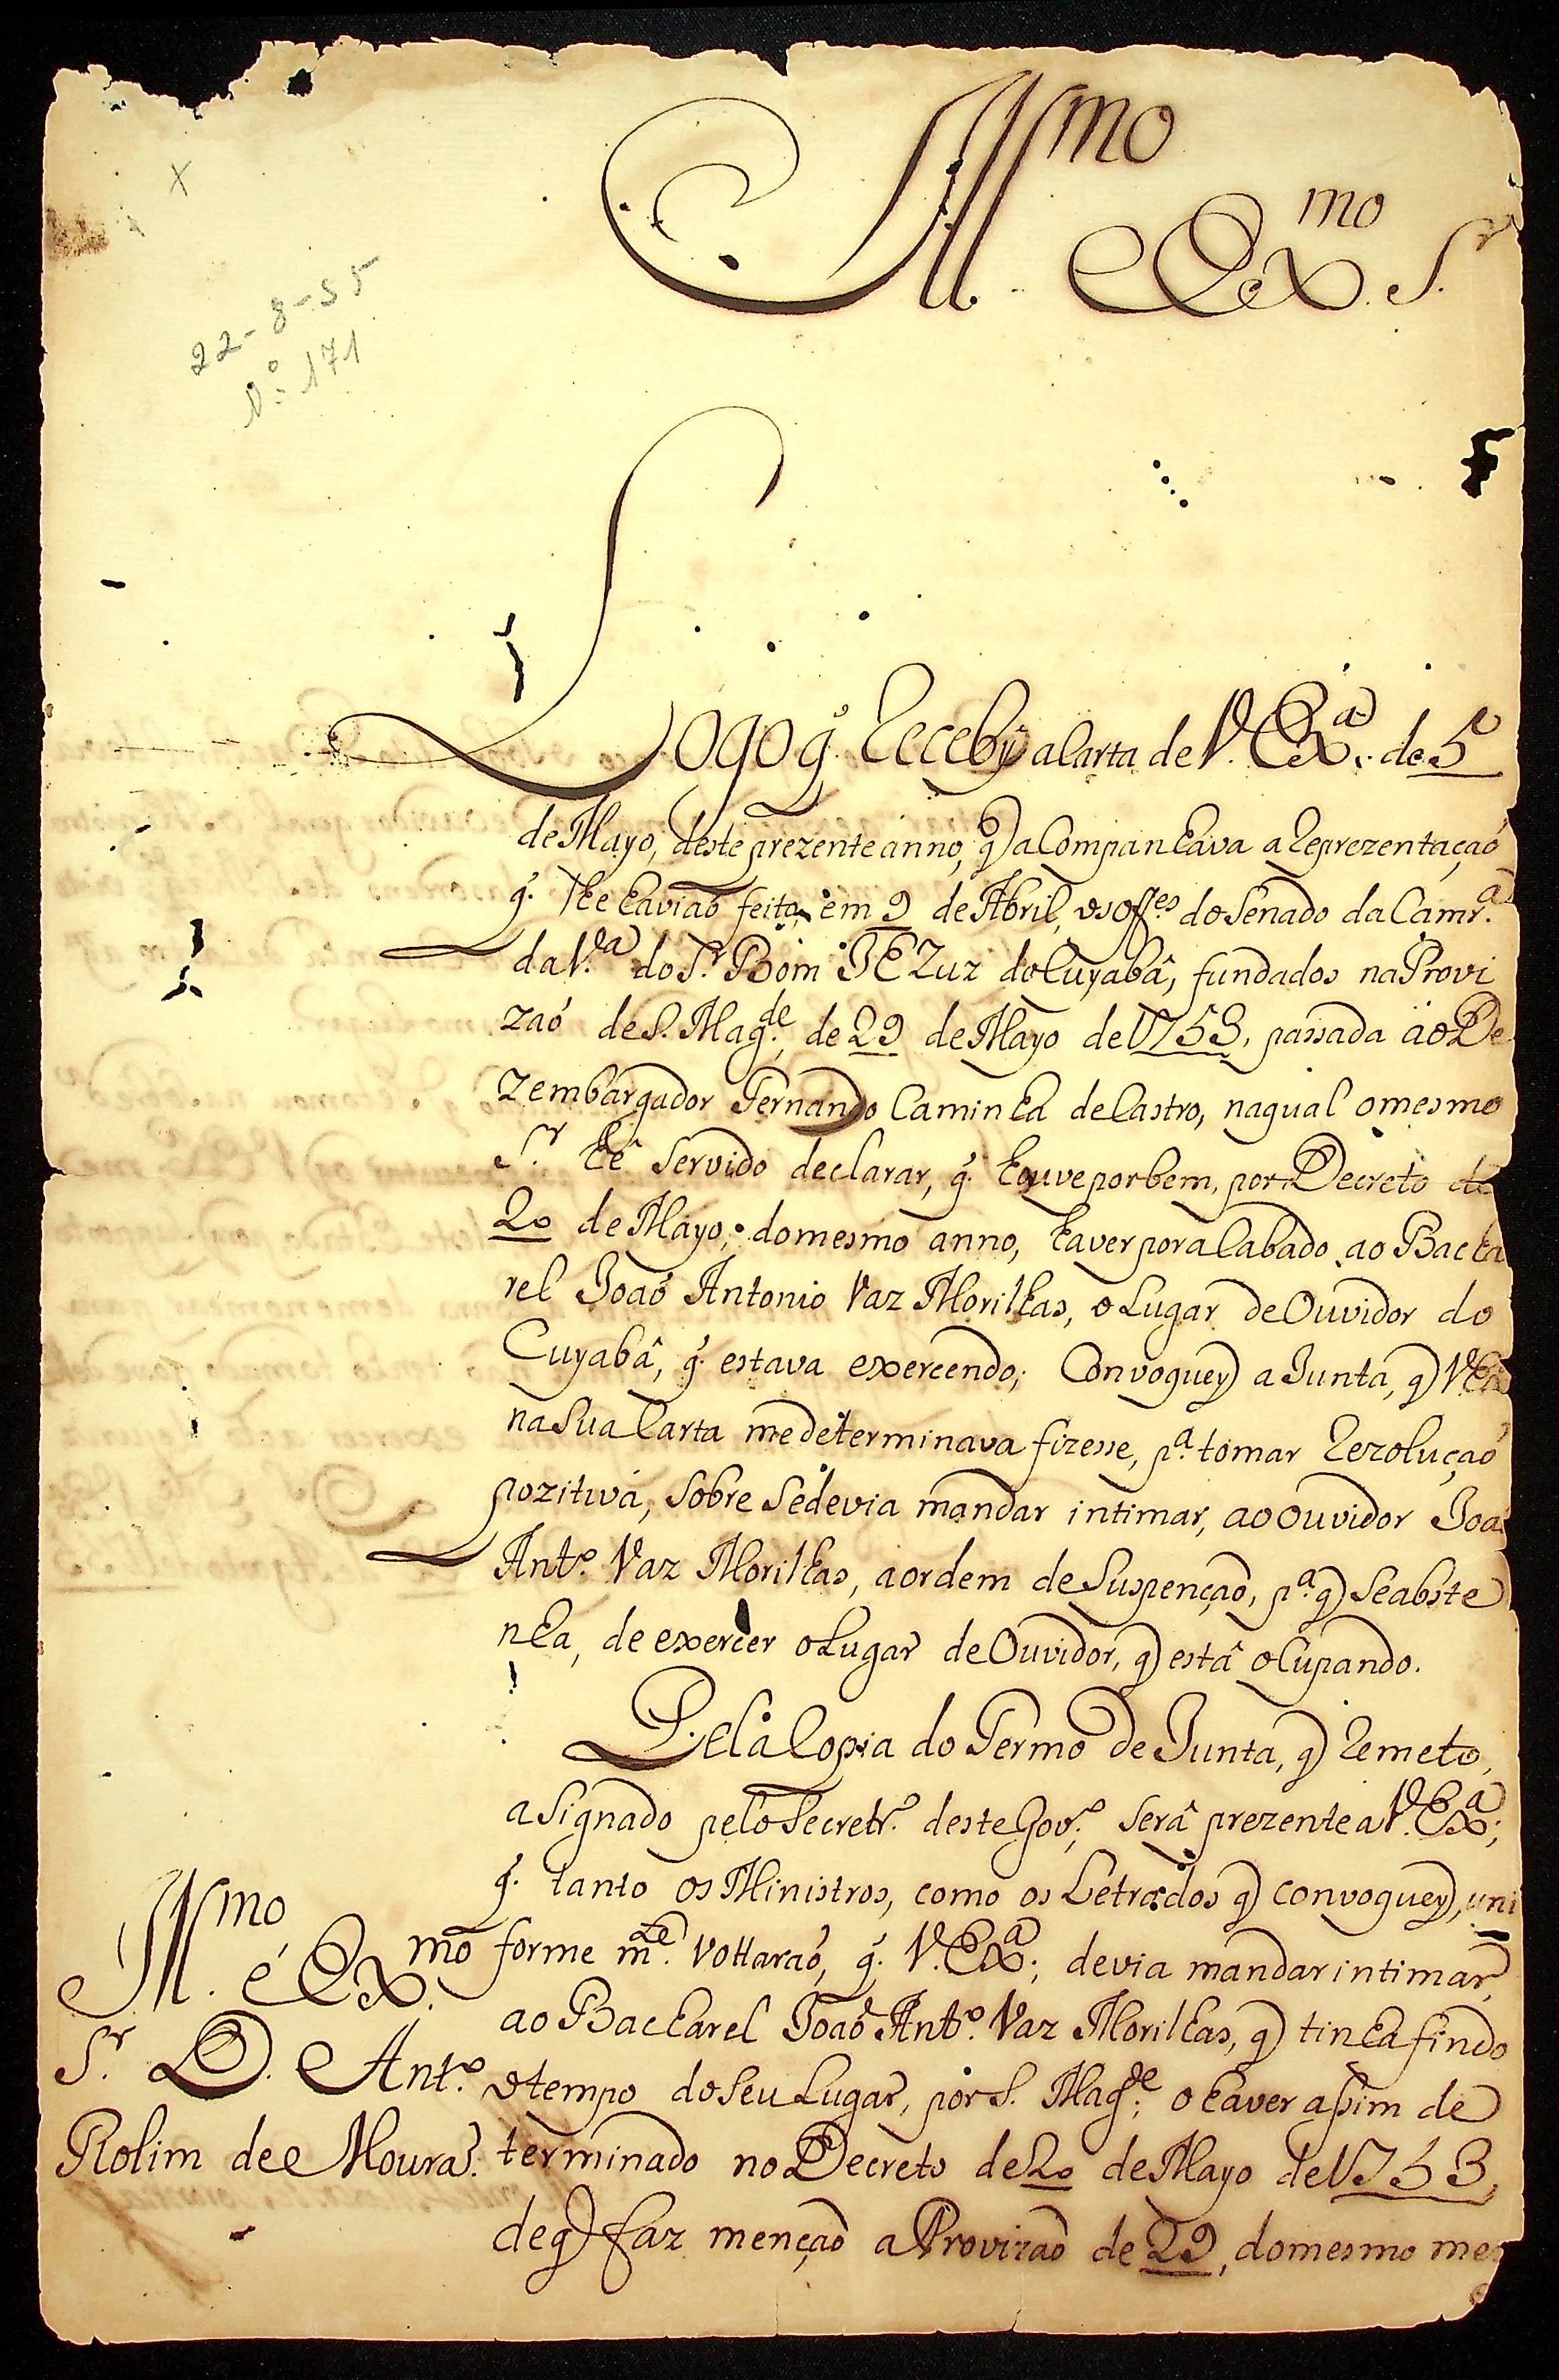 Ill.mo e Ex.mo S.r
22-8-55
N.o 171
Logo q̃. Recebÿ a Carta de V. Ex.a de 5
de Mayo, deste prezente anno, q̃ a Companhava a Reprezentaçaõ
q̃. lhe haviaõ feito, em 9 de Abril, os off.es do Senado da Camr.a
da V.a do S.r Bom JEZuz do Cuyabâ, fundados na Provi
zaõ de S. Mag.de, de 29 de Mayo de 1753, passada ao De
zembargador Fernando Caminha de Castro, naqual o mesmo
S.r hê Servido declarar, q̃. houve por bem, por Decreto de
20 de Mayo, do mesmo anno, haver por aCabado ao Bacha
rel Joaõ Antonio Vaz Morilhas, o Lugar de Ouvidor do
Cuyabâ, q̃. estava exercendo; Convoquey a Junta, q̃ V. Ex.a
na Sua Carta me determinava fizesse, p.a tomar Rezoluçaõ
pozitiva, Sobre Se devia mandar intimar, ao Ouvidor Joaõ
Ant.o Vaz Morilhas, a ordem de Suspençaõ, p.a q̃ Se abste
nha, de exercer o Lugar de Ouvidor, q̃ estâ oCupando.
Pela Copia do Termo de Junta, q̃ Remeto,
aSignado pelo Secretr.o deste Gov.o, Serâ prezente a V. Ex.a;
q̃. tanto os Ministros, como os Letrados q̃ convoquey, uni
forme m.te Vottaraõ, q̃. V. Ex.a; devia mandar intimar,
ao Bacharel Joaõ Ant.o Vaz Morilhas, q̃ tinha findo
o tempo do Seu Lugar, por S. Mag.de; o haver assim de
terminado no Decreto de 20 de Mayo de 1753,
de q̃ faz mençaõ a Provizaõ de 29, do mesmo mes
Ill.mo e Ex.mo
S.r D. Ant.o
Rolim de Moura.